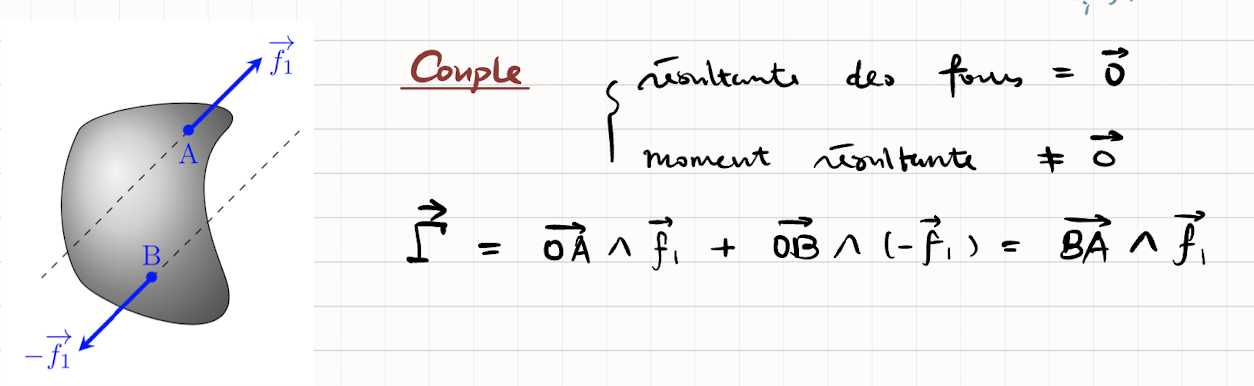 $\vec{f_1}$
A
B
$-\vec{f_1}$
Couple
résultante des forces = $\vec{0}$
moment résultante ≠ $\vec{0}$
$\vec{\Gamma} = \vec{OA} \wedge \vec{f_1} + \vec{OB} \wedge (-\vec{f_1}) = \vec{BA} \wedge \vec{f_1}$